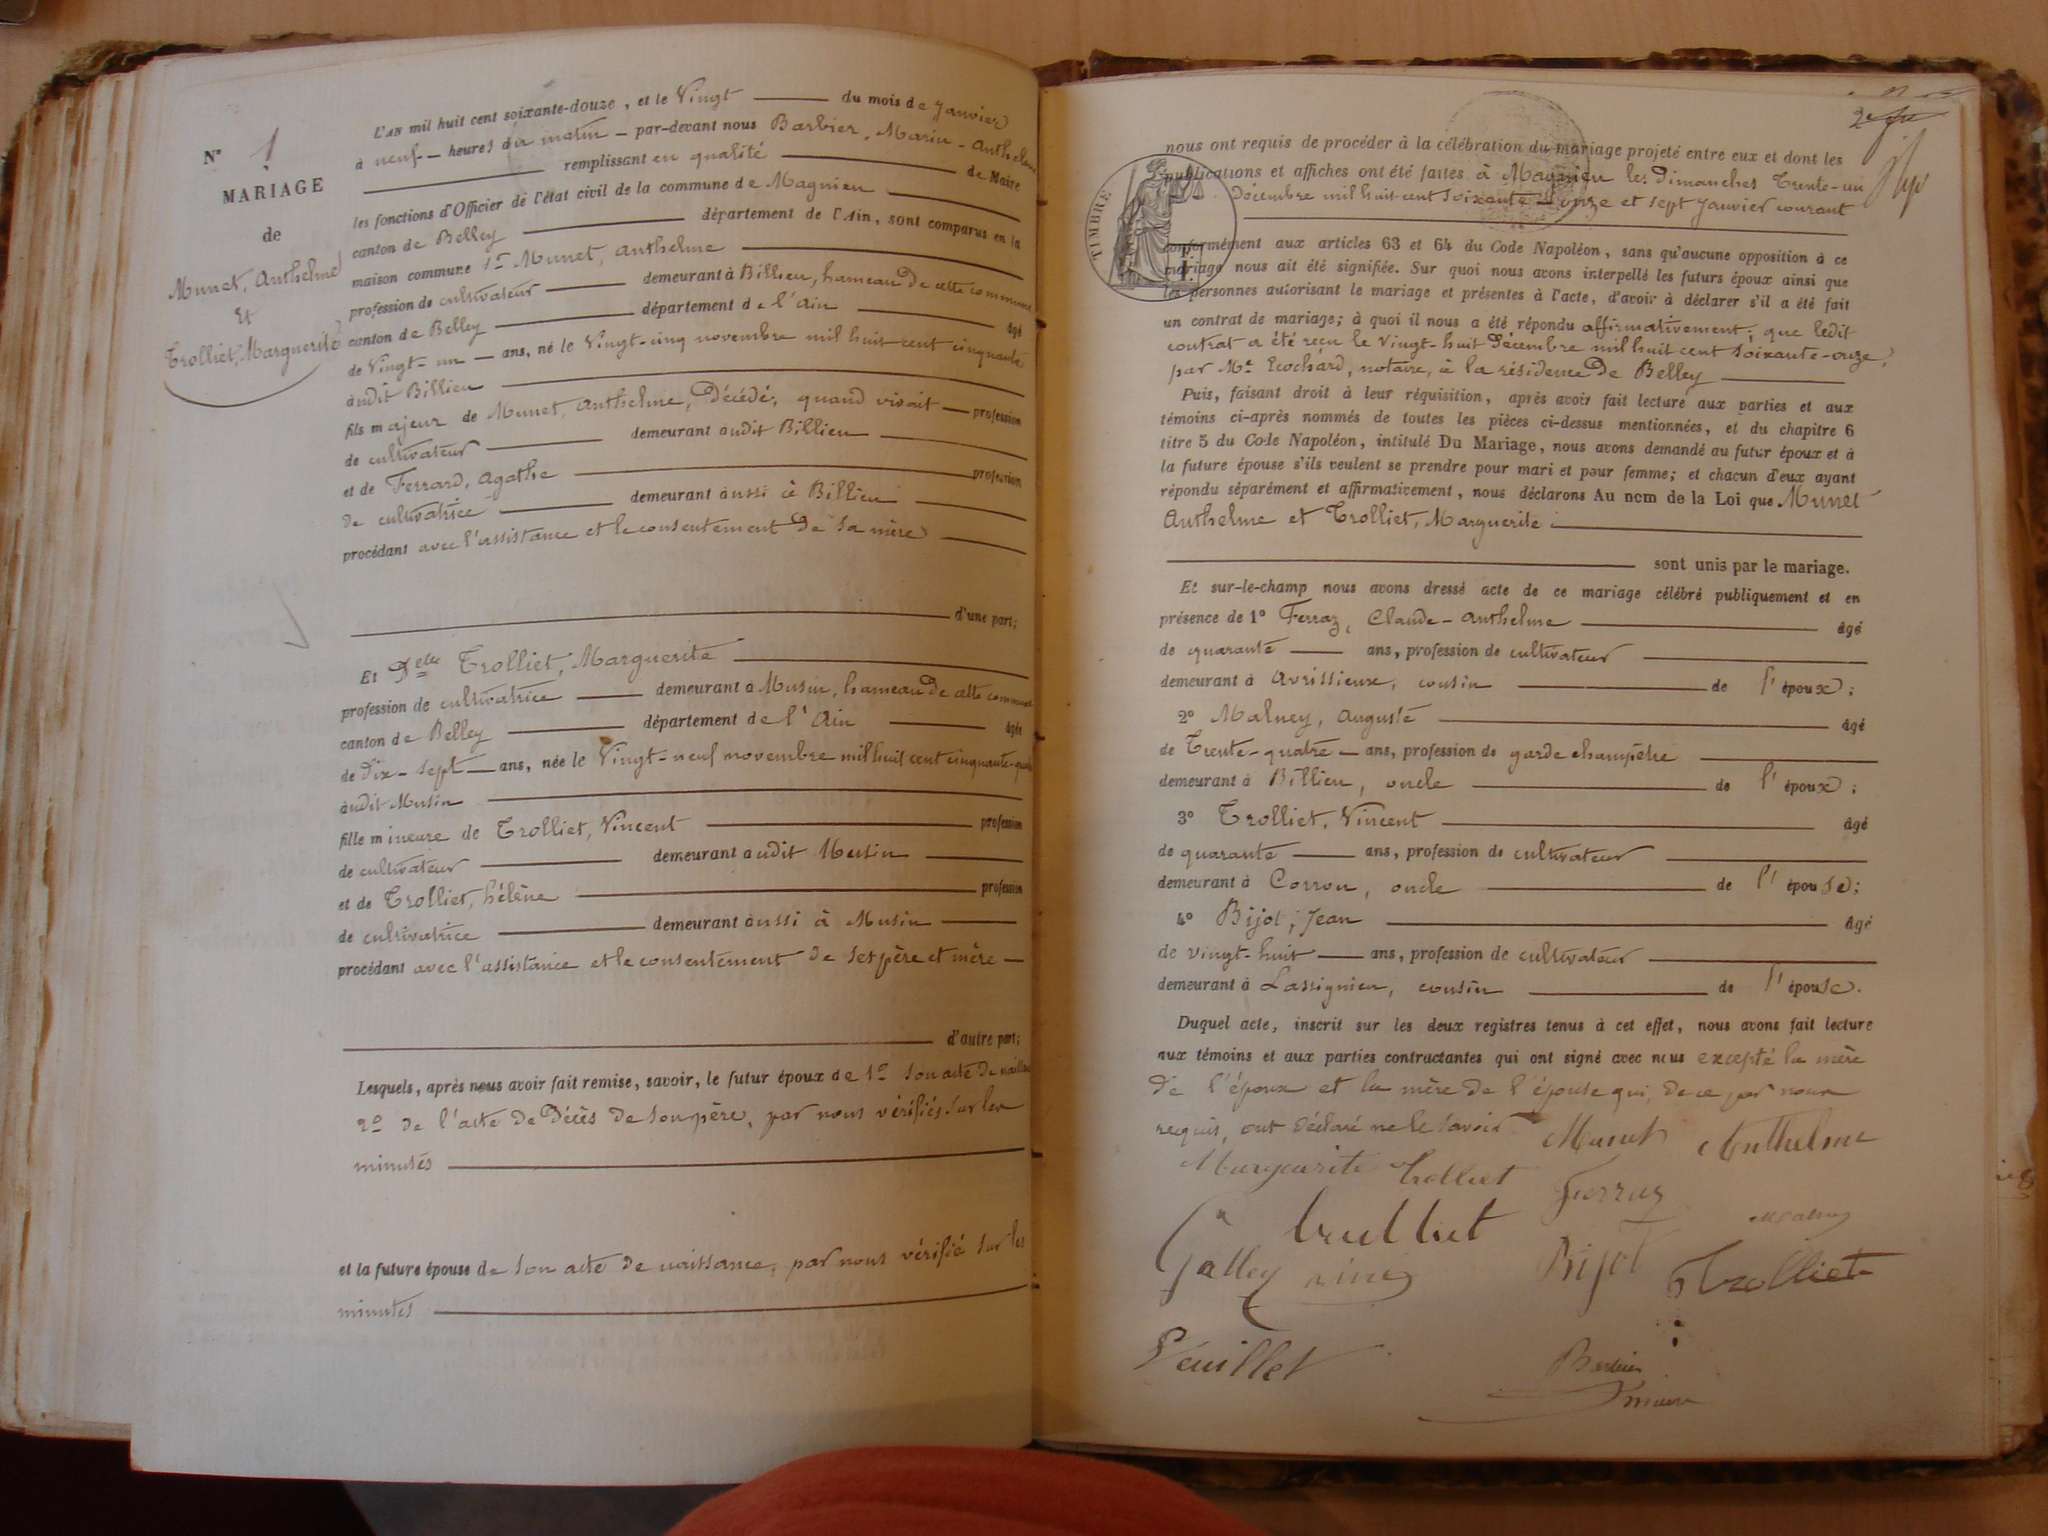 N° 1
MARIAGE
de
Munet, Anthelme
Et
Trolliet, Marguerite
L'an mil huit cent soixante-douze, et le Vingt du mois de Janvier
à neuf heures du matin par-devant nous Barbier, Marin-Anthelme
remplissant en qualité de Maire
les fonctions d'Officier de l'état civil de la commune de Magnieu
canton de Belley département de l'Ain, sont comparus en la
maison commune 1° Munet, Anthelme
profession de cultivateur demeurant à Billieu, hameau de cette commune
canton de Belley département de l'Ain âgé
de Vingt-un ans, né le Vingt-cinq novembre mil huit cent cinquante
audit Billieu
fils majeur de Munet, Anthelme, Décédé, quand vivait profession
de cultivateur demeurant audit Billieu
et de Ferrard, Agathe profession
de cultivatrice demeurant aussi à Billieu
procédant avec l'assistance et le consentement de sa mère
d'une part;
Et Delle Trolliet, Marguerite
profession de cultivatrice demeurant à Musin, hameau de cette commune
canton de Belley département de l'Ain âgée
de dix-sept ans, née le Vingt-neuf novembre mil huit cent cinquante-quatre
audit Musin
fille mineure de Trolliet, Vincent profession
de cultivateur demeurant audit Musin
et de Trolliet, hélène profession
de cultivatrice demeurant aussi à Musin
procédant avec l'assistance et le consentement de ses père et mère
d'autre part;
Lesquels, après nous avoir fait remise, savoir, le futur époux de 1° son acte de naissance
2° de l'acte de Décès de son père, par nous vérifiés sur les
minutes
et la future épouse de son acte de naissance, par nous vérifié sur les
minutes
nous ont requis de procéder à la célébration du mariage projeté entre eux et dont les
publications et affiches ont été faites à Magnieu les Dimanches Trente-un
Décembre mil huit cent soixante-onze et sept Janvier courant
TIMBRE
conformément aux articles 63 et 64 du Code Napoléon, sans qu'aucune opposition à ce
mariage nous ait été signifiée. Sur quoi nous avons interpellé les futurs époux ainsi que
les personnes autorisant le mariage et présentes à l'acte, d'avoir à déclarer s'il a été fait
un contrat de mariage; à quoi il nous a été répondu affirmativement; que ledit
contrat a été reçu le Vingt-huit Décembre mil huit cent soixante-onze,
par Me Ecochard, notaire, à la résidence de Belley
Puis, faisant droit à leur réquisition, après avoir fait lecture aux parties et aux
témoins ci-après nommés de toutes les pièces ci-dessus mentionnées, et du chapitre 6
titre 5 du Code Napoléon, intitulé Du Mariage, nous avons demandé au futur époux et à
la future épouse s'ils veulent se prendre pour mari et pour femme; et chacun d'eux ayant
répondu séparément et affirmativement, nous déclarons Au nom de la Loi que Munet
Anthelme et Trolliet, Marguerite
sont unis par le mariage.
Et sur-le-champ nous avons dressé acte de ce mariage célébré publiquement et en
présence de 1° Ferraz, Claude-Anthelme âgé
de quarante ans, profession de cultivateur
demeurant à Avrissieux, cousin de l'époux;
2° Malney, Auguste âgé
de Trente-quatre ans, profession de garde champêtre
demeurant à Billieu, oncle de l'époux;
3° Trolliet, Vincent âgé
de quarante ans, profession de cultivateur
demeurant à Corron, oncle de l'épouse;
4° Bijot, Jean âgé
de vingt-huit ans, profession de cultivateur
demeurant à Lassignieu, cousin de l'épouse.
Duquel acte, inscrit sur les deux registres tenus à cet effet, nous avons fait lecture
aux témoins et aux parties contractantes qui ont signé avec nous excepté la mère
de l'époux et la mère de l'épouse qui, de ce par nous
requis, ont déclaré ne le savoir Munet Anthelme
Marguerite Trolliet Ferraz
Trolliet
Galley Bijot Trolliet
Peuillet Barbier
maire